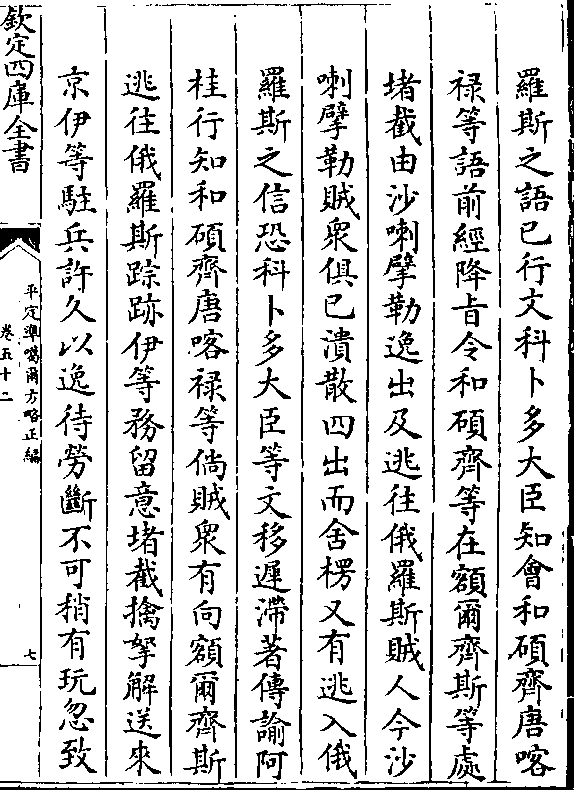 羅斯之語已行文科卜多大臣知會和碩齊唐喀
禄等語前經降旨令和碩齊等在額爾齊斯等處
堵截由沙喇擘勒逸出及逃往俄羅斯賊人今沙
喇擘勒賊衆俱已潰散四出而舍楞又有逃入俄
羅斯之信恐科卜多大臣等文移遲滯著傳諭阿
桂行知和碩齊唐喀禄等倘賊衆有向額爾齊斯
逃往俄羅斯踪跡伊等務留意堵截擒拏解送來
京伊等駐兵許久以逸待勞斷不可稍有玩忽致
欽定四庫全書
平定凖噶爾方略正編
卷五十二
七